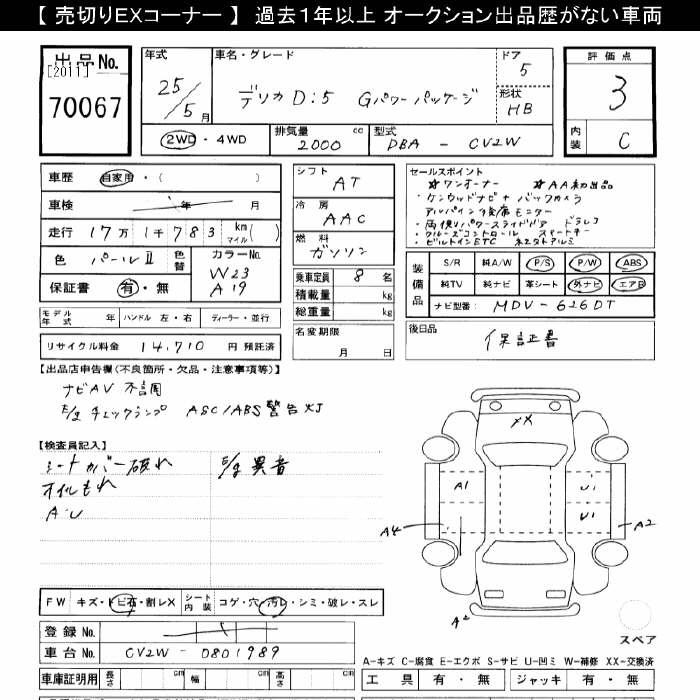 【 売切りEXコーナー 】 過去1年以上 オークション出品歴がない車両
出品 No.
[2011]
70067
年式
25/5月
車名・グレード
デリカ D:5 Gパワーパッケージ
ドア
5
形状
HB
評価点
3
内装
C
2WD ・ 4WD
排気量
2000 cc
型式
DBA - CV2W
車歴 自家用・( )
車検 年 月
走行 17万1千783 km マイル ( )
色 パールⅡ 色替
カラーNo.
W23
A19
保証書 有・無
シフト
AT
冷房
AAC
燃料
ガソリン
乗車定員 8 名
積載量 kg
総重量 kg
名変期限
月 日
セールスポイント
☆ワンオーナー ☆AA初出品
・ケンウッドナビ+バックカメラ
アルパイン後席モニター
・両側パワースライドドア ドラレコ
・クルーズコントロール スマートキー
・ビルトインETC 社外アルミ
装備品
S/R 純A/W P/S P/W ABS
純TV 純ナビ 革シート 外ナビ エアB
ナビ型番: MDV-626DT
モデル年式 年 ハンドル 左・右 ディーラー・並行
リサイクル料金 14,710 円 預託済
後日品
保証書
【出品店申告欄(不良箇所・欠品・注意事項等)】
ナビAV 不調
E/g チェックランプ ASC/ABS警告灯
【検査員記入】
シートカバー破れ E/g 異音
オイルもれ
A・U
XX
A1
U1
U1
A4
A2
A2
スペア
FW キズ・トビ石・割レX シート内装 コゲ・穴・汚レ・シミ・破レ・スレ
登録 No.
車台 No. CV2W - 0801989
車庫証明用 長さ cm 幅 cm 高さ cm
A-キズ C-腐食 E-エクボ S-サビ U-凹ミ W-補修 XX-交換済
工具 有・無 ジャッキ 有・無